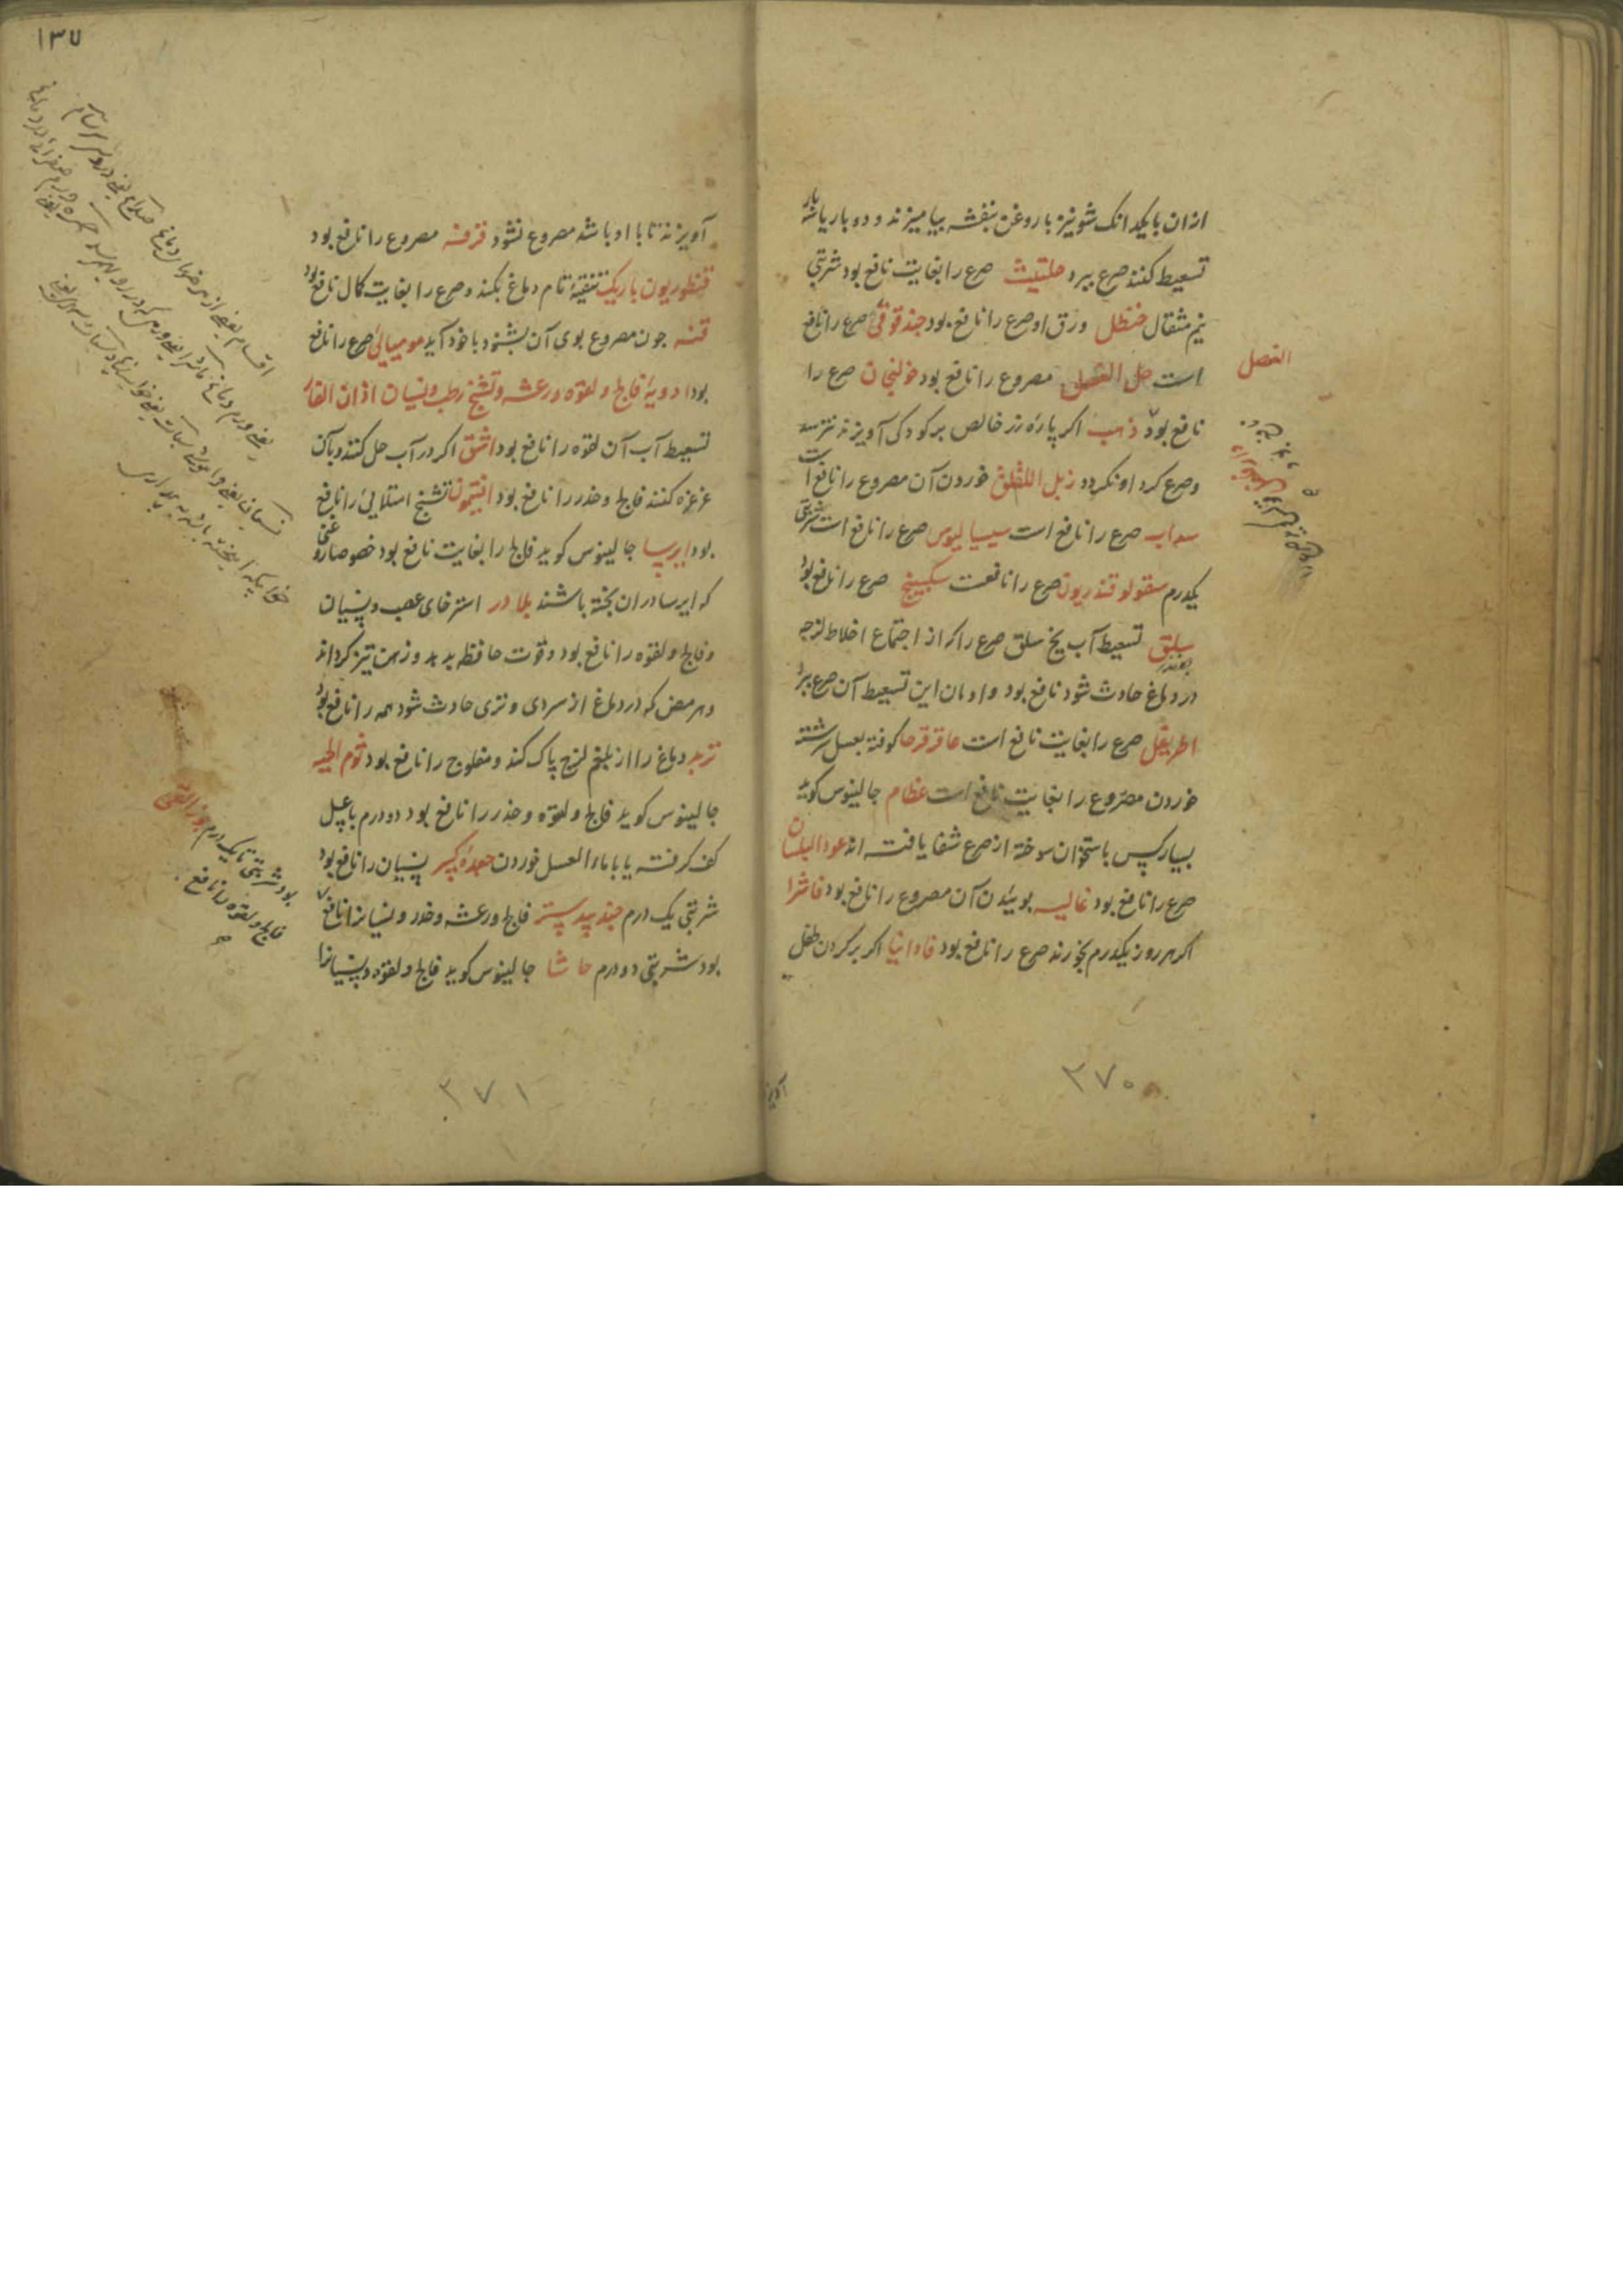 ازان با یکدانک شونیز با روغن بنفشه بیامیزند و دو بار یا سه بار
تسعیط کنند صرع ببرد حلتیت صرع را بغایت نافع بود شربتی
نیم مثقال حنظل ورق او صرع را نافع بود حندقوقی صرع را نافع
است خل العنصل مصروع را نافع بود خولنجان صرع را
نافع بود ذهب اکر پارهٔ زر خالص بر کودکی آویزند نترسد
و صرع کرد او نکردد زبل اللقلق خوردن آن مصروع را نافع است
سداب صرع را نافع است سیسالیوس صرع را نافع است شربتی
یکدرم سقولوقندریون صرع را نافعست سکبینج صرع را نافع بود
سلق تسعیط آب یخ سلق صرع را کر از اجتماع اخلاط لزجه
در دماغ حادث شود نافع بود و ادمان این تسعیط آن صرع ببرد
اطریفل صرع را بغایت نافع است عاقرقرحا کوفته بعسل سرشته
خوردن مصروع را بغایت نافع است عظام جالینوس کوید
بسیار کس باستخوان سوخته از صرع شفا یافته اند عود البلسان
صرع را نافع بود غالیه بوئیدن آن مصروع را نافع بود فاشرا
اکر هر روز یکدرم بخورند صرع را نافع بود فاوانیا اکر بر کردن طفل
العنصل
۳۷۰
۱۳۷
آویزند تا با او باشد مصروع نشود قرفه مصروع را نافع بود
قنطوریون باریک تنقیهٔ تام دماغ بکند و صرع را بغایت کال نافع بود
قنه جون مصروع بوی آن بشنود با خود آید مومیائی صرع را نافع
بود ادویهٔ فالج و لقوه و رعشه و تشنج رطب و نسیان اذان الفار
تسعیط آب آن لقوه را نافع بود اشق اکر در آب حل کنند و بآن
غرغره کنند فالج و خدر را نافع بود افتیمون تشنج امتلایی را نافع
بود ایرسا جالینوس کوید فالج را بغایت نافع بود خصوصا روغنی
که ایرسا دران پخته باشند بلادر استرخای عصب و نسیان
و فالج و لقوه را نافع بود و قوت حافظه بدهد و ذهن تیز کرداند
و هر مرض که در دماغ از سردی و تری حادث شود همه را نافع بود
تربد دماغ را از بلغم لزج پاک کند و مفلوج را نافع بود ثوم الحیه
جالینوس کوید فالج و لقوه و خدر را نافع بود دو درم با عسل
کف کرفته یا با ماء العسل خوردن جعدهٔ کبیر نسیان را نافع بود
شربتی یک درم جندبیدستر فالج و رعشه و خدر و نسیانرا نافع
بود شربتی دو درم حاشا جالینوس کوید فالج و لقوه و نسیانرا
بود شربتی تا یک درم جوز القی
فالج و لقوه را نافع
۳۷۱